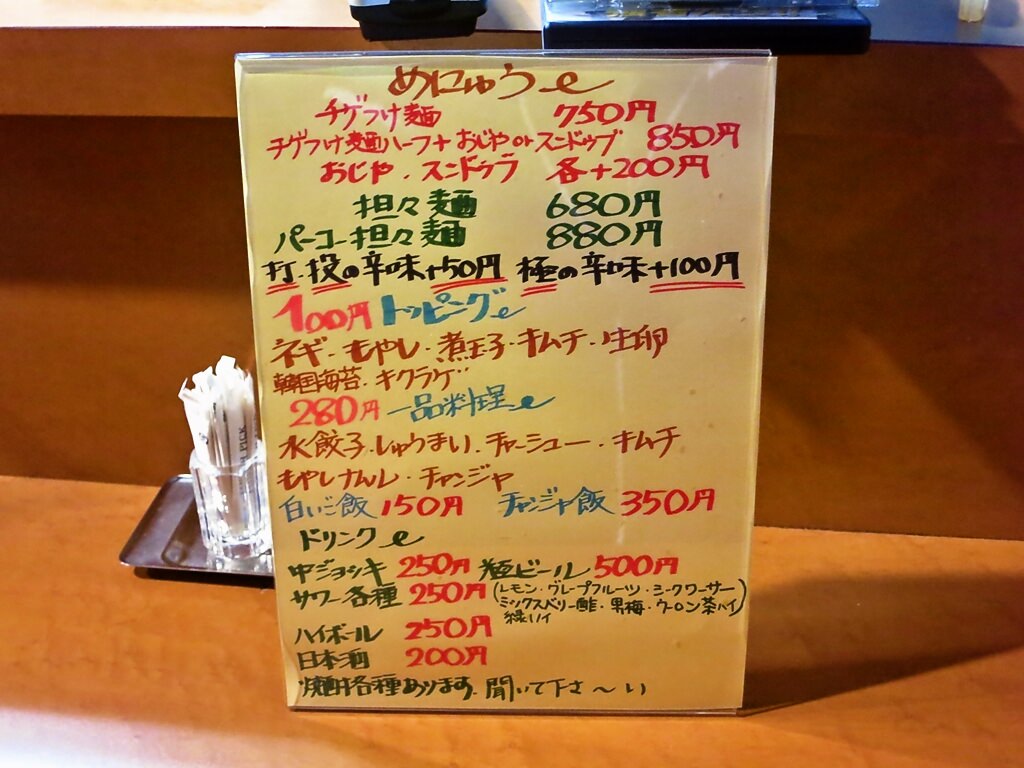 めにゅう
チゲつけ麺 750円
チゲつけ麺ハーフ+おじやorスンドゥブ 850円
おじや・スンドゥブ 各+200円
担々麺 680円
パーコー担々麺 880円
打・投の辛味+50円 極の辛味+100円
100円トッピング
ネギ・もやし・煮玉子・キムチ・生卵
韓国海苔・キクラゲ
280円 一品料理
水餃子・しゅうまい・チャーシュー・キムチ
もやしナムル・チャンジャ
白いご飯 150円 チャンジャ飯 350円
ドリンク
中ジョッキ 250円 瓶ビール 500円
サワー各種 250円 (レモン・グレープフルーツ・シークワーサー
ミックスベリー酢・男梅・ウーロン茶ハイ)
緑ハイ
ハイボール 250円
日本酒 200円
焼酎各種あります。聞いて下さ〜い
PICK